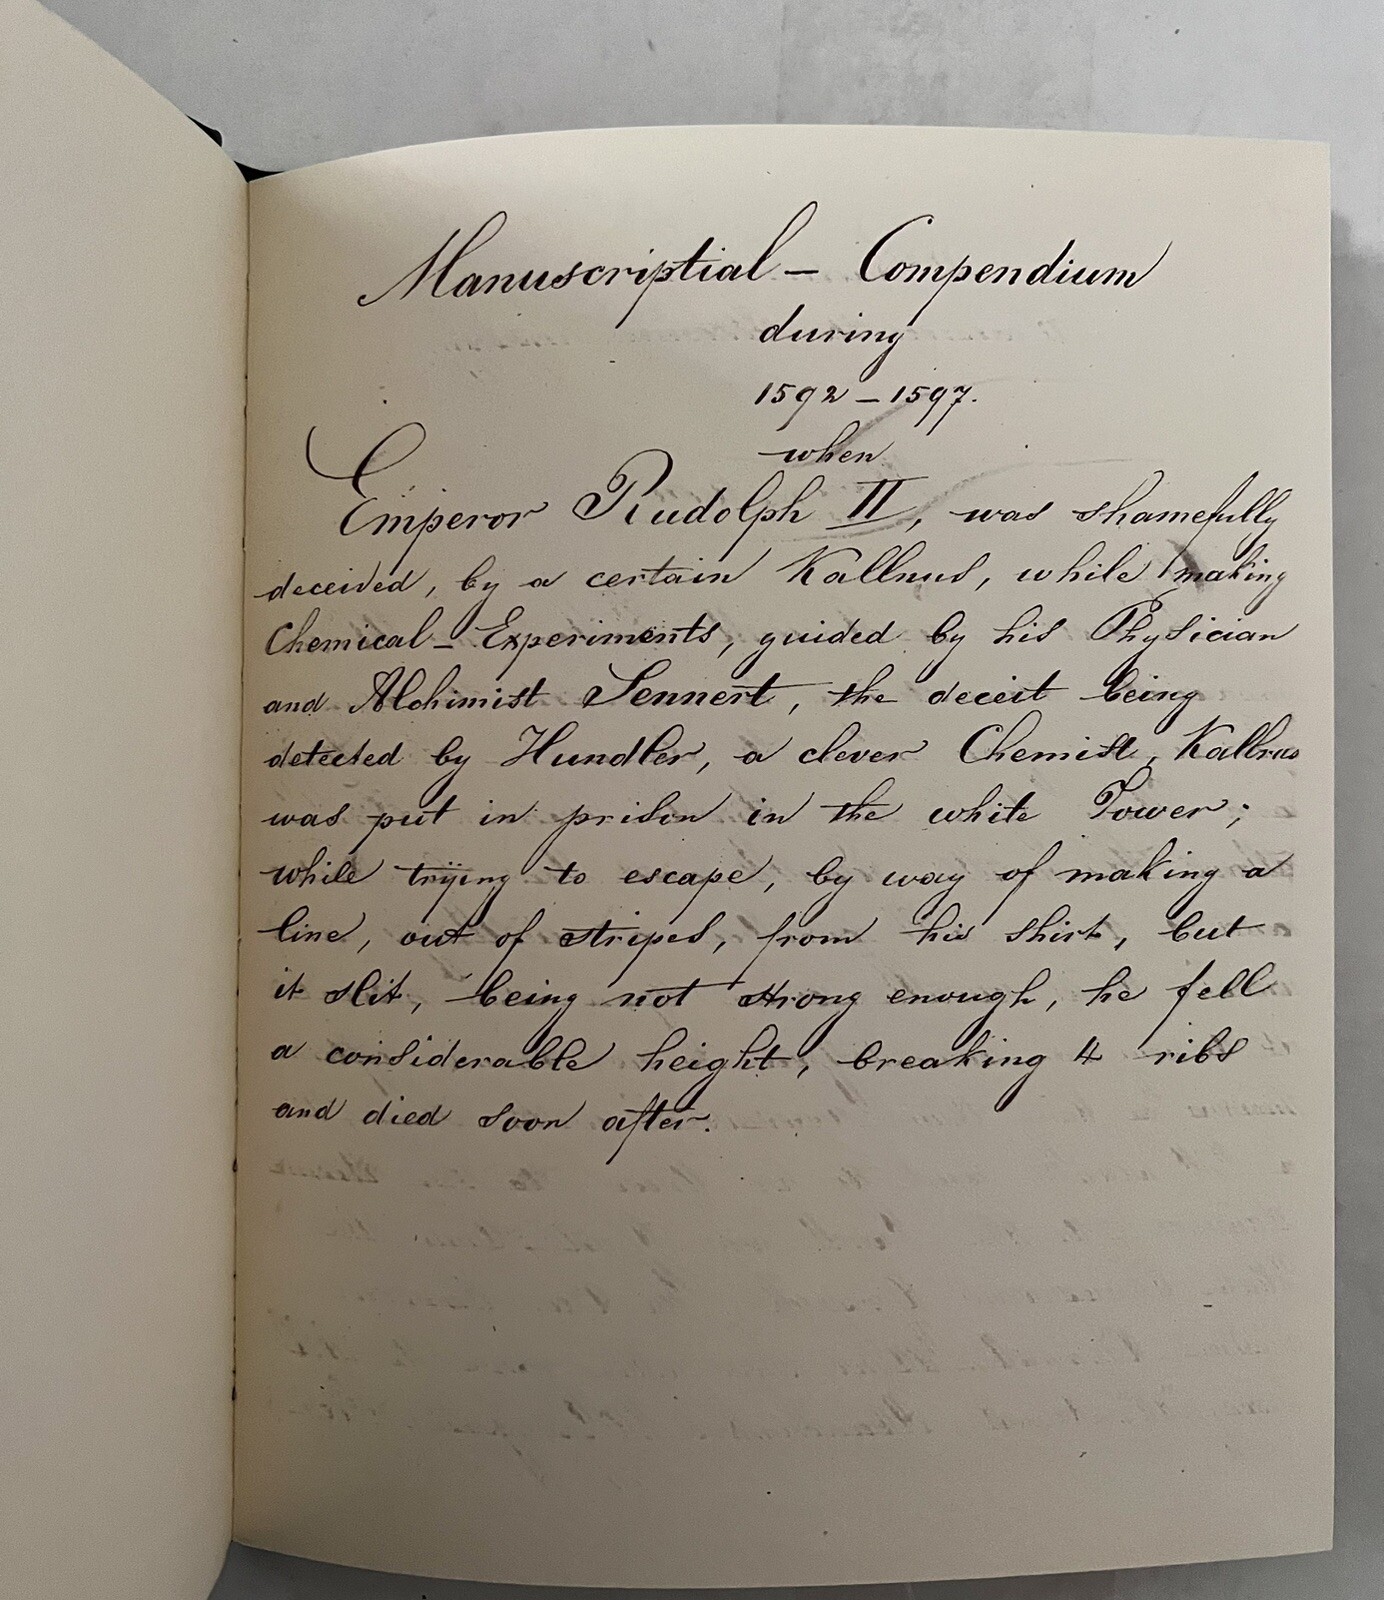 Manuscriptial – Compendium
during
1592 – 1597.
when
Emperor Rudolph II, was shamefully
deceived, by a certain Kallnus, while making
Chemical – Experiments, guided by his Physician
and Alchimist Sennert, the deceit being
detected by Hundler, a clever Chemist, Kallnus
was put in prison in the white Tower;
while trÿing to escape, by way of making a
line, out of stripes, from his shirt, but
it slit, being not strong enough, he fell
a considerable height, breaking 4 ribs
and died soon after.